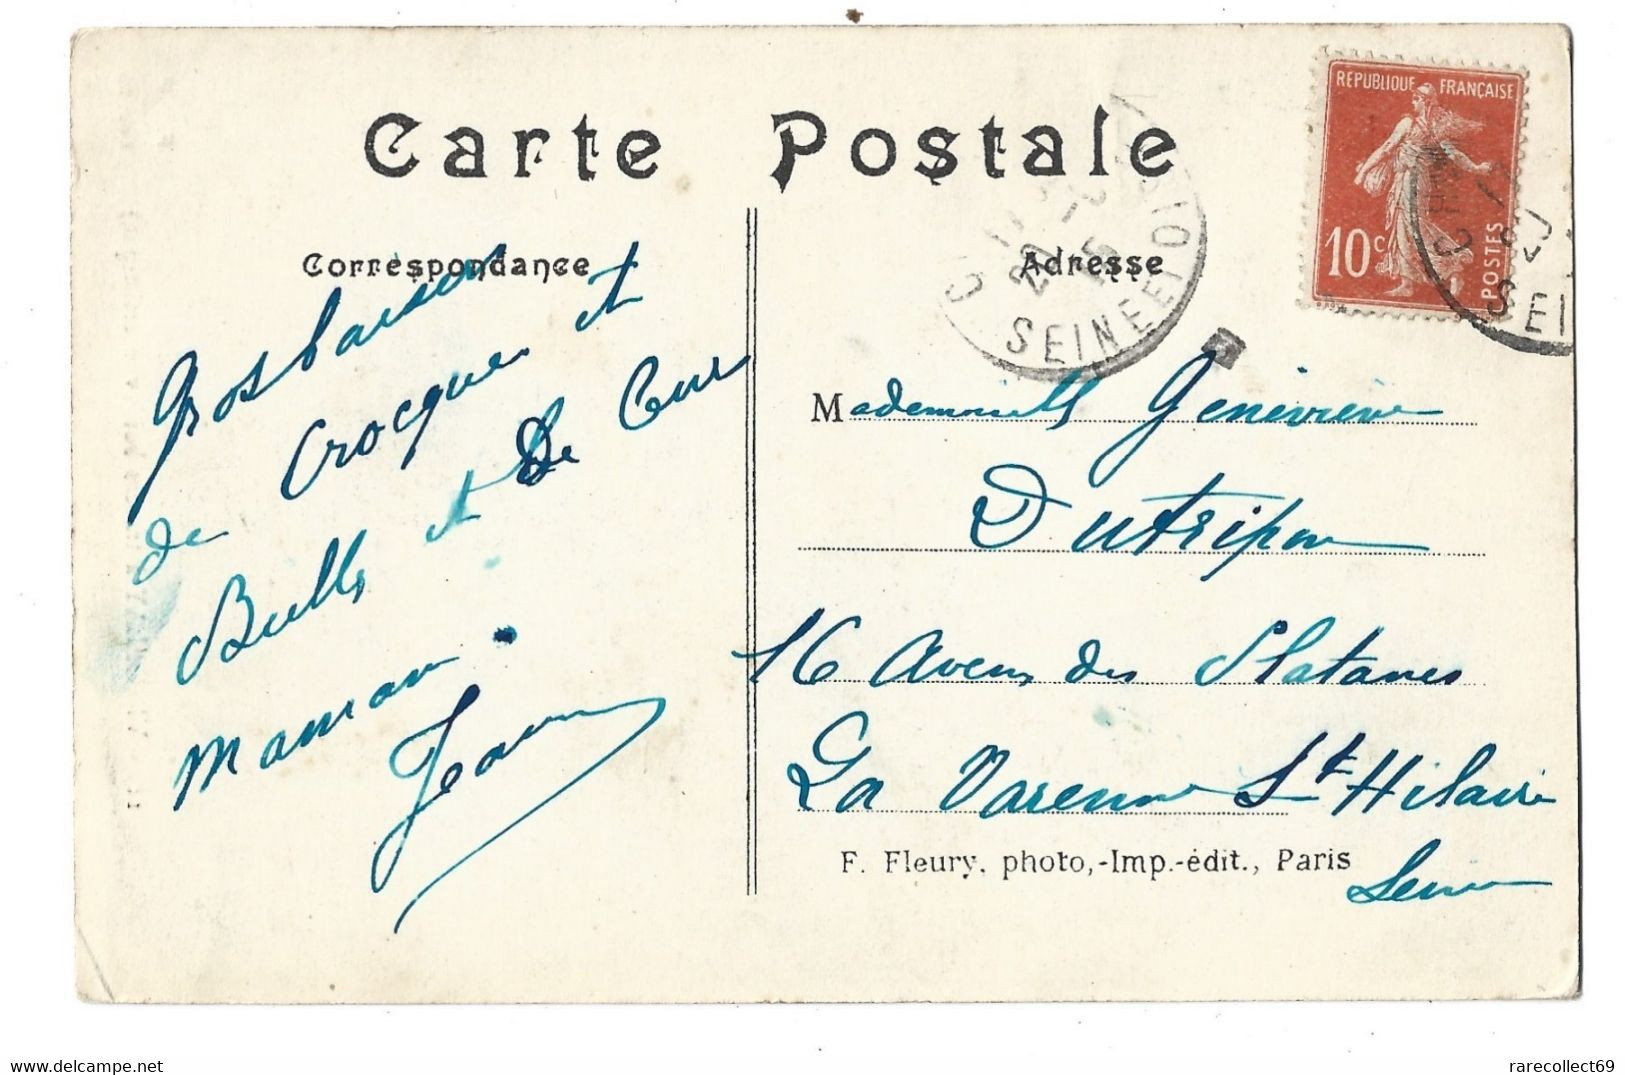 Carte Postale
Correspondance
Gros baisers
de Crocque et
Bulls et De leur
maman.
Jeanne
Adresse
REPUBLIQUE FRANÇAISE
10c
POSTES
SEINE ET OI
SEI
Mademoiselle Geneviève
Dutripon
16 Avenue des Platanes
La Varenne St Hilaire
Seine
F. Fleury, photo,-Imp.-édit., Paris
rarecollect69